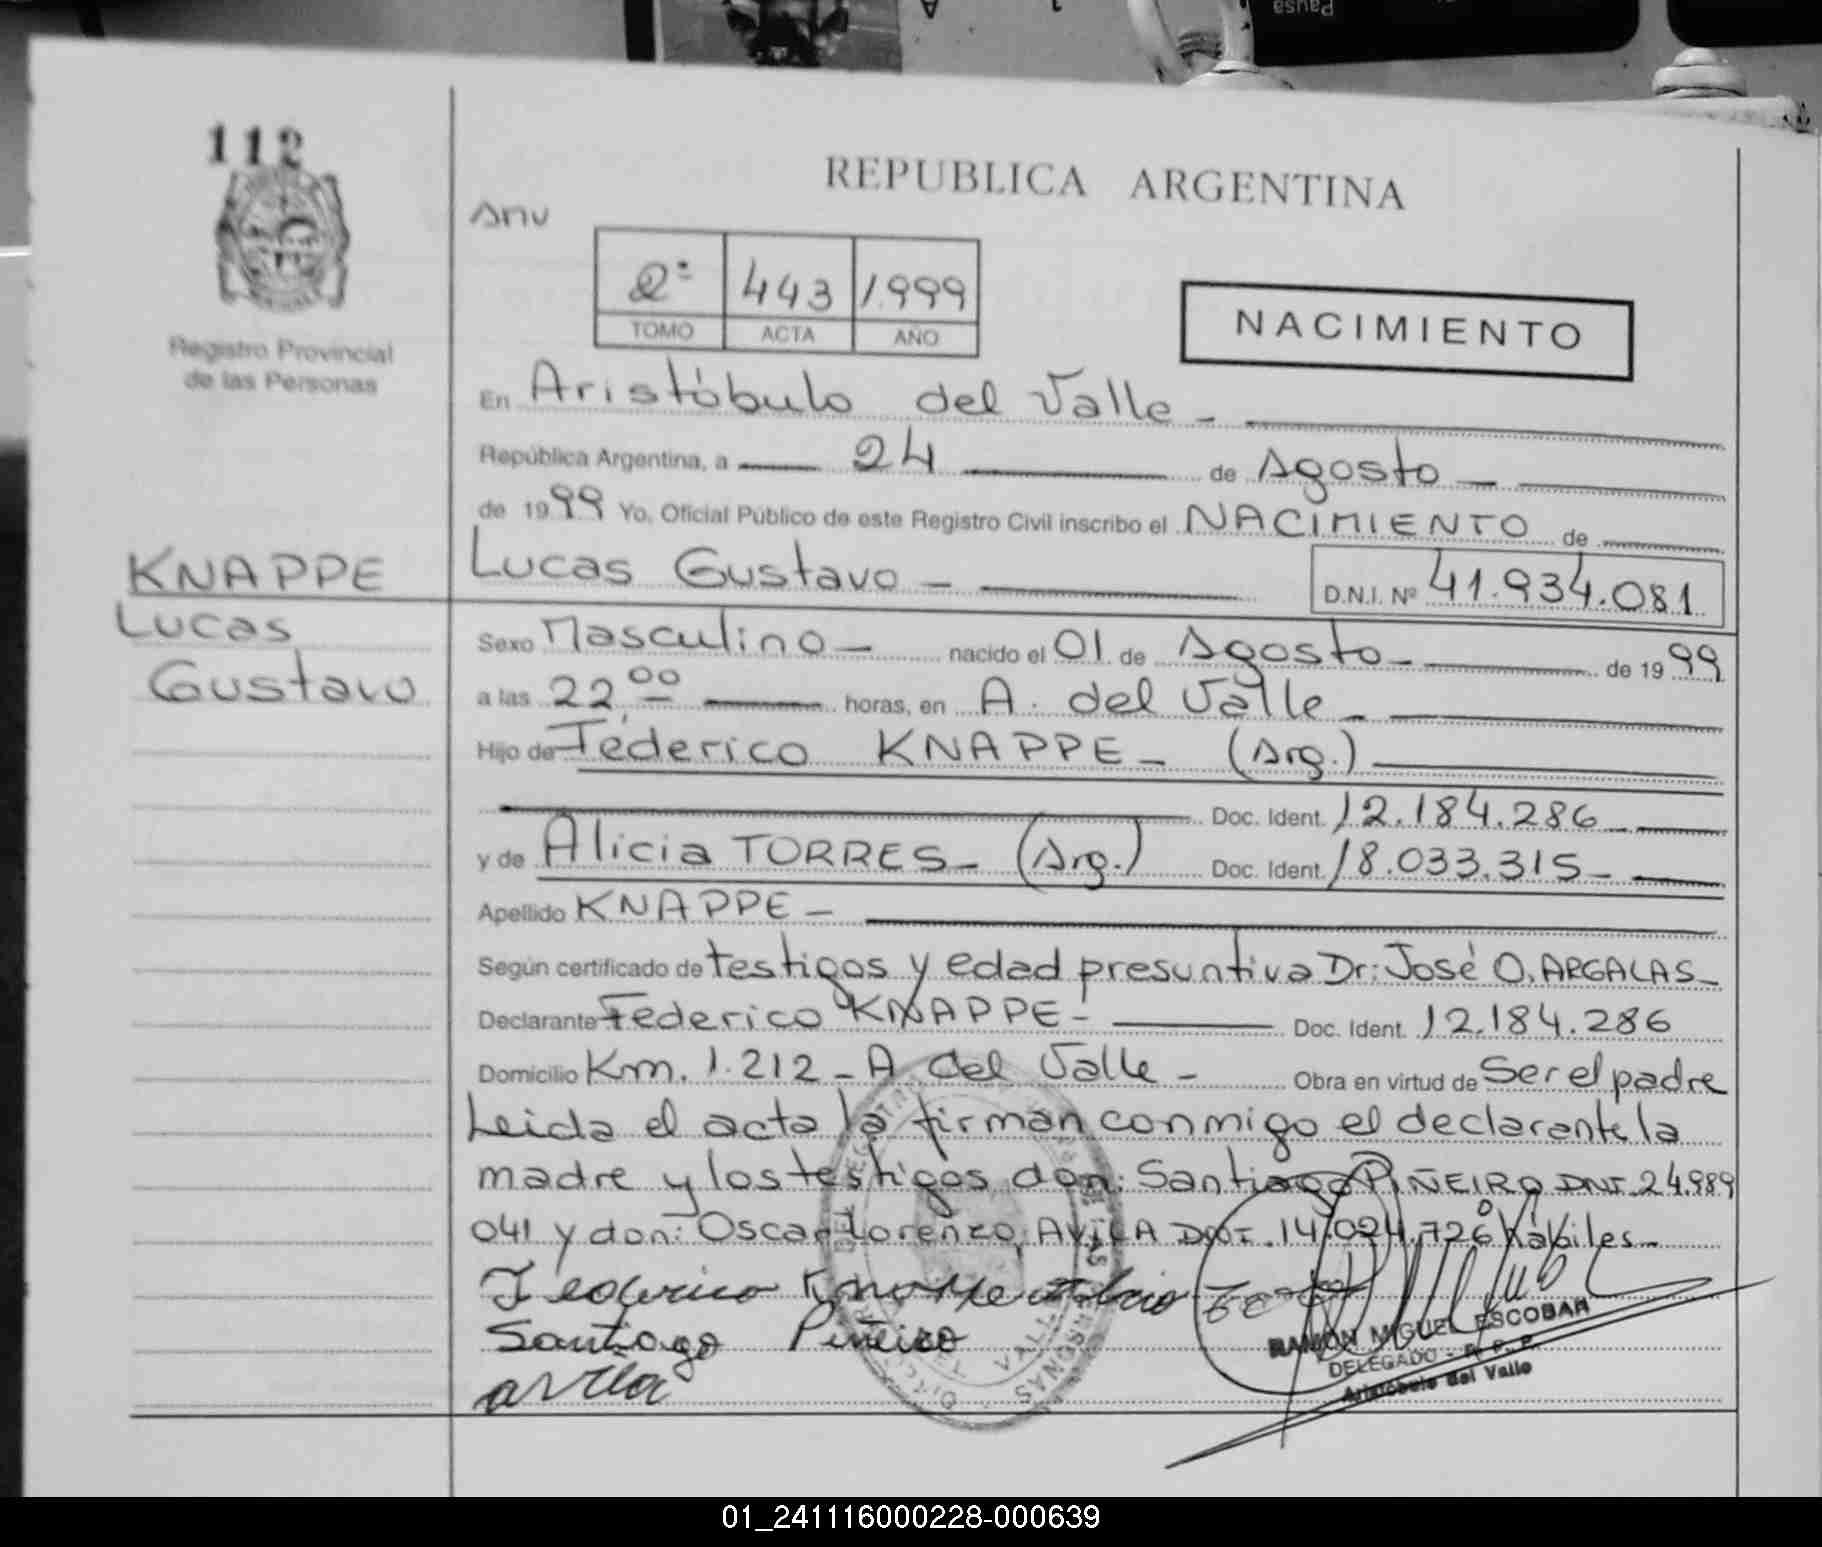 Pausa
112
REPUBLICA ARGENTINA
Anv
2º 443 1.999
TOMO ACTA AÑO
NACIMIENTO
Registro Provincial
de las Personas
En Aristóbulo del Valle -
República Argentina, a 24 de Agosto -
de 1999 Yo, Oficial Público de este Registro Civil inscribo el NACIMIENTO de
KNAPPE
Lucas
Gustavo
Lucas Gustavo - D.N.I. Nº 41.934.081
Sexo Masculino - nacido el 01 de Agosto - de 1999
a las 22,00 horas, en A. del Valle -
Hijo de Federico KNAPPE - (Arg.)
Doc. Ident. 12.184.286 -
y de Alicia TORRES - (Arg.) Doc. Ident. 18.033.315 -
Apellido KNAPPE -
Según certificado de testigos y edad presuntiva Dr: José O. ARGALAS -
Declarante Federico KNAPPE - Doc. Ident. 12.184.286
Domicilio Km. 1.212 - A del Valle - Obra en virtud de Ser el padre
Leida el acta la firman conmigo el declarante la
madre y los testigos don: Santiago PIÑEIRO DNI. 24.989
041 y don: Oscar Lorenzo, AVILA DNI. 14.024.726 hábiles -
Federico Knappe
Santiago Piñeiro
avila
RAMON MIGUEL ESCOBAR
DELEGADO - R. P. P.
Aristóbulo del Valle
01_241116000228-000639